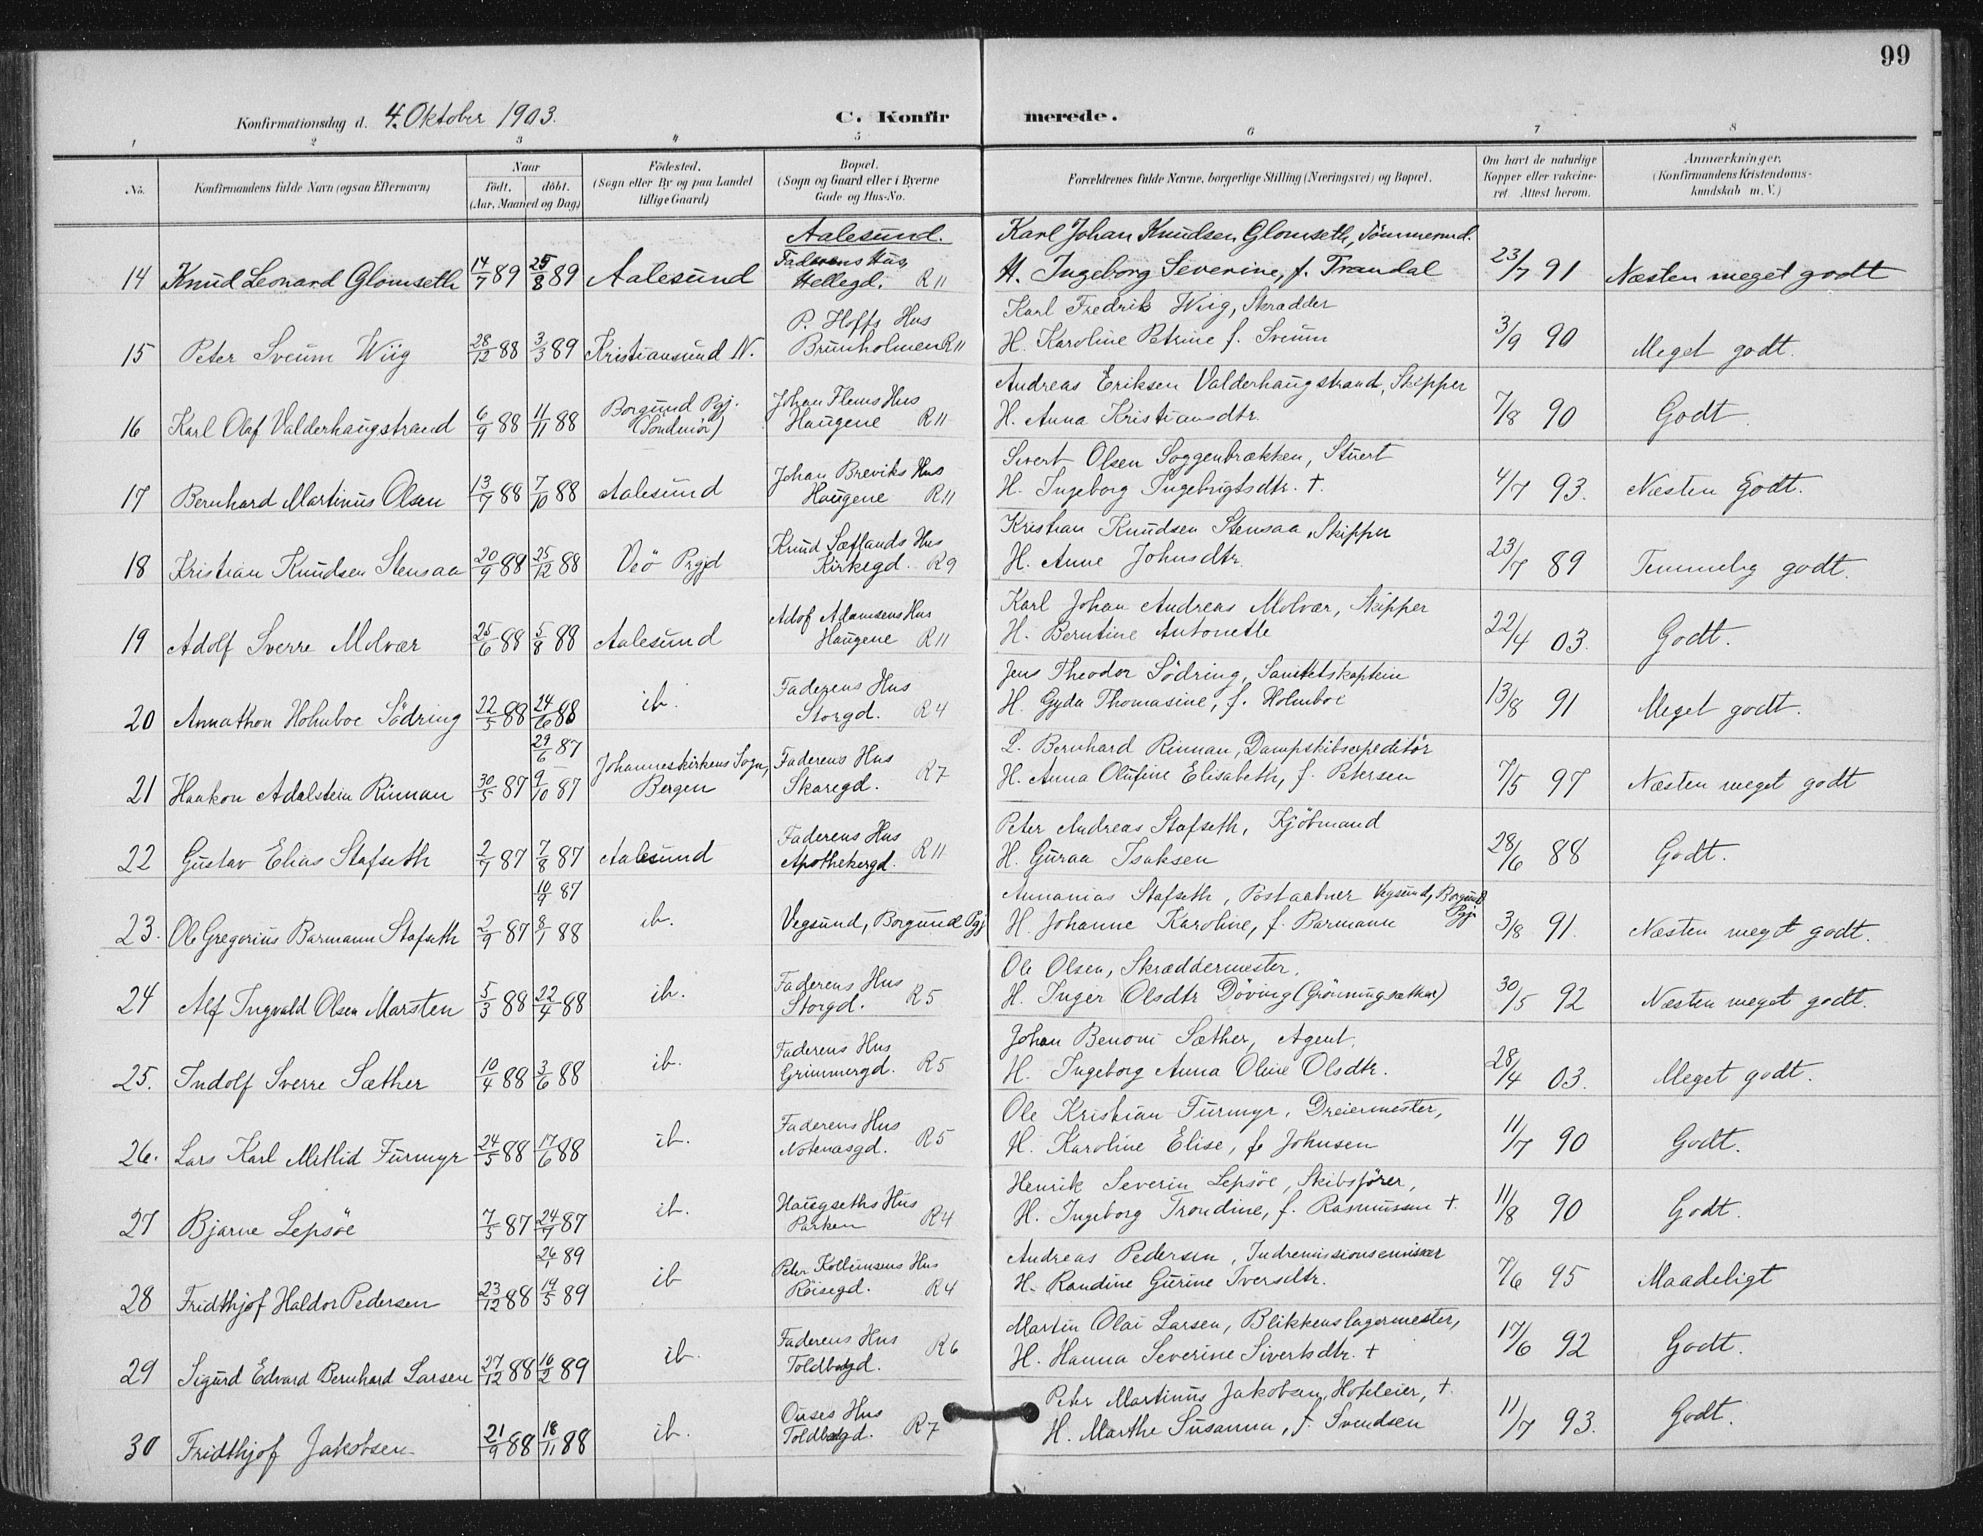 99
Konfirmationsdag d. 4. Oktober 1903. C. Konfirmerede.
1 2 3 4 5 6 7 8
No. Konfirmandens fulde Navn (ogsaa Efternavn) Naar født. døbt. (Aar, Maaned og Dag) Fødested. (Sogn eller By og paa Landet tillige Gaard) Bopæl. (Sogn og Gaard eller i Byerne Gade og Hus-No. Forældrenes fulde Navne, borgerlige Stilling (Næringsvei) og Bopæl. Om havt de naturlige Kopper eller vakcineret. Attest herom. Anmærkninger. (Konfirmandens Kristendomskundskab m. V.)
Aalesund. Karl Johan Knudsen Glomseth, Tömmermd.
14 Knud Leonard Glomseth 14/7 89 25/8 89 Aalesund Faderens Hus, Hellegd. R 11 H. Ingeborg Severine, f. Trandal 23/7 91 Næsten meget godt
P. Hoffs Hus Karl Fredrik Wiig, Skrædder
15 Peter Sveum Wiig 28/12 88 3/3 89 Kristiansund N. Brunholmen R 11 H. Karoline Petrine f. Sveum 3/9 90 Meget godt.
Borgund Pgj. Johan Flems Hus Andreas Eriksen Valderhaugstrand, Skipper
16 Karl Olaf Valderhaugstrand 6/9 88 11/11 88 (Söndmör) Haugene R 11 H. Anna Kristiansdtr. 7/8 90 Godt
Johan Breviks Hus Sivert Olsen Soggenbrækken, Stuert
17 Bernhard Martinus Olsen 13/7 88 7/10 88 Aalesund Haugene R 11 H. Ingeborg Ingebrigtsdtr. †. 4/7 93. Næsten Godt.
Knud Sætlands Hus Kristian Knudsen Stensaa, Skipper
18 Kristian Knudsen Stensaa 20/9 88 25/12 88 Veö Prgjd Kirkegd. R 9 H. Anne Johnsdtr. 23/7 89 Temmelig godt.
Adof Adamsens Hus Karl Johan Andreas Molvær, Skipper
19 Adolf Sverre Molvær 25/6 88 5/8 88 Aalesund Haugene R 11 H. Berntine Antonette 22/4 03. Godt.
Faderens Hus Jens Theodor Södring, Sanitetskaptein
20 Annathon Holmboe Södring 22/5 88 24/6 88 ib. Storgd. R 4 H. Gyda Thomasine, f. Holmboe 13/8 91 Meget godt.
29/6 87 Johanneskirkens Sogn, Faderens Hus L. Bernhard Rinnan, Dampskibsexpeditör
21 Haakon Adalstein Rinnan 30/5 87 9/10 87 Bergen Skaregd. R 7 H. Anna Olufine Elisabeth, f. Petersen 7/5 97 Næsten meget godt
Faderens Hus Peter Andreas Stafseth, Kjöbmand
22 Gustav Elias Stafseth 2/7 87 7/8 87 Aalesund Apothekergd. R 11 H. Guraa Isaksen 28/6 88 Godt.
10/9 87 Annanias Stafseth, Postaabner Vegsund, Borgund Pgj.
23. Ole Gregorius Barmann Stafseth 2/9 87 8/1 88 ib. Vegsund, Borgund Pgj H. Johanne Karoline, f. Barmann 3/8 91. Næsten meget godt.
Faderens Hus Ole Olsen, Skræddermester.
24 Alf Ingvald Olsen Marsten 5/3 88 22/4 88 ib. Storgd. R 5 H. Inger Olsdtr Döving (Grönningsæther) 30/5 92 Næsten meget godt.
Faderens Hus Johan Benoni Sæther, Agent.
25. Indolf Sverre Sæther 10/4 88 3/6 88 ib. Grimmergd. R 5 H. Ingeborg Anna Oline Olsdtr. 28/4 03. Meget godt.
Faderens Hus Ole Kristian Furmyr, Dreiermester,
26. Lars Karl Mitlid Furmyr 24/5 88 17/6 88 ib. Notenasgd. R 5 H. Karoline Elise, f. Johnsen 11/7 90 Godt.
Haugseths Hus Henrik Severin Lepsöe, Skibsförer,
27 Bjarne Lepsöe 7/5 87 24/7 87 ib. Parken R 4 H. Ingeborg Trondine, f. Rasmussen †. 11/8 90 Godt.
26/1 89 Peter Kolbeinsens Hus Andreas Pedersen, Indremissionsemissær
28 Fridthjof Haldor Pedersen 23/12 88 19/5 89 ib Röisegd. R 4 H. Randine Gurine Iversdtr. 7/6 95 Maadeligt
Faderens Hus Martin Olai Larsen, Blikkenslagermester,
29 Sigurd Edvard Bernhard Larsen 27/12 88 10/2 89 ib. Toldbodgd. R 6 H. Hanna Severine Sivertsdtr. † 17/6 92 Godt.
Ouses Hus Peter Martinus Jakobsen, Hofeleier, †.
30 Fridthjof Jakobsen 21/9 88 18/11 88 ib. Toldbodgd. R 7 H. Marthe Susanna, f. Svendsen 11/7 93. Godt.